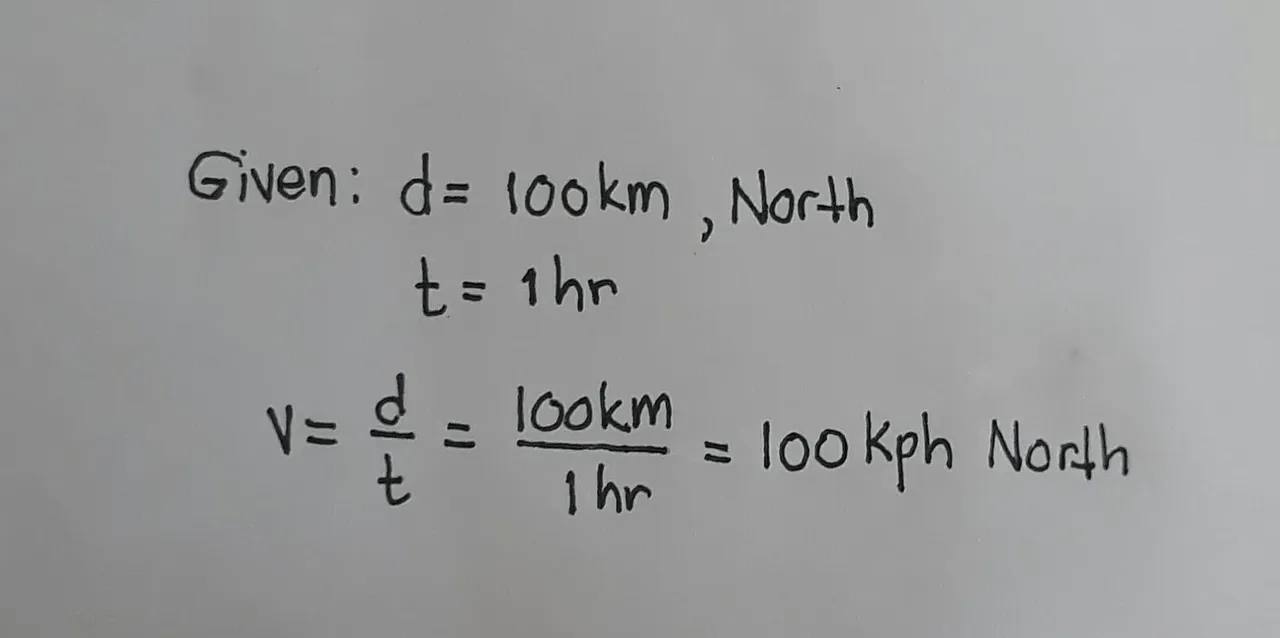 Given: d = 100km, North
t = 1 hr
V = d/t = 100km/1 hr = 100 kph North